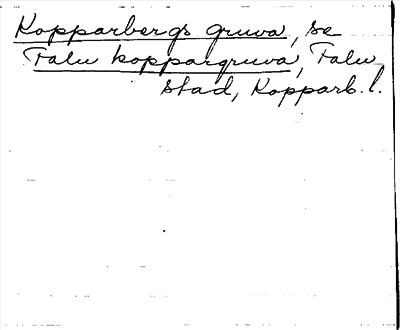 Kopparbergs gruva, se
Falu koppargruva, Falu
stad, Kopparb. l.